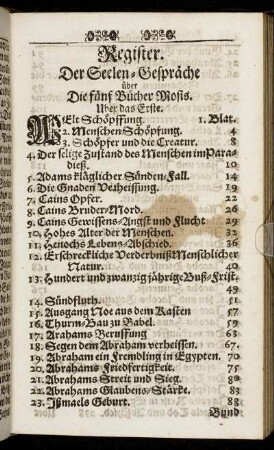 Register.
Der Seelen-Gespräche
über
Die fünf Bücher Mosis.
Uber das Erste.
WElt Schöpffung. 1. Blat.
2. Menschen Schöpfung. 4
3. Schöpfer und die Creatur. 8
4. Der selige Zustand des Menschen im Para-
dieß. 10
5. Adams kläglicher Sünden-Fall. 14
6. Die Gnaden Verheissung. 19
7. Cains Opfer. 22
8. Cains Bruder-Mord. 26
9. Cains Gewissens-Angst und Flucht 29
10. Hohes Alter der Menschen. 32
11. Henochs Lebens-Abschied. 36
12. Erschreckliche Verderbniß Menschlicher
Natur. 40
13. Hundert und zwanzig jährige Buß-Frist.
49
14. Sündfluth. 51
15. Ausgang Noe aus dem Kasten 57
16. Thurm-Bau zu Babel. 59
17. Arahams Beruffung 63
18. Segen dem Abraham verheissen. 67.
19. Abraham ein Fremdling in Egypten. 70
20. Abrahams Friedfertigkeit. 75
21. Abrahams Streit und Sieg. 80
22. Abrahams Glaubens-Stärke. 83
23. Ißmaels Geburt. 88
Bund